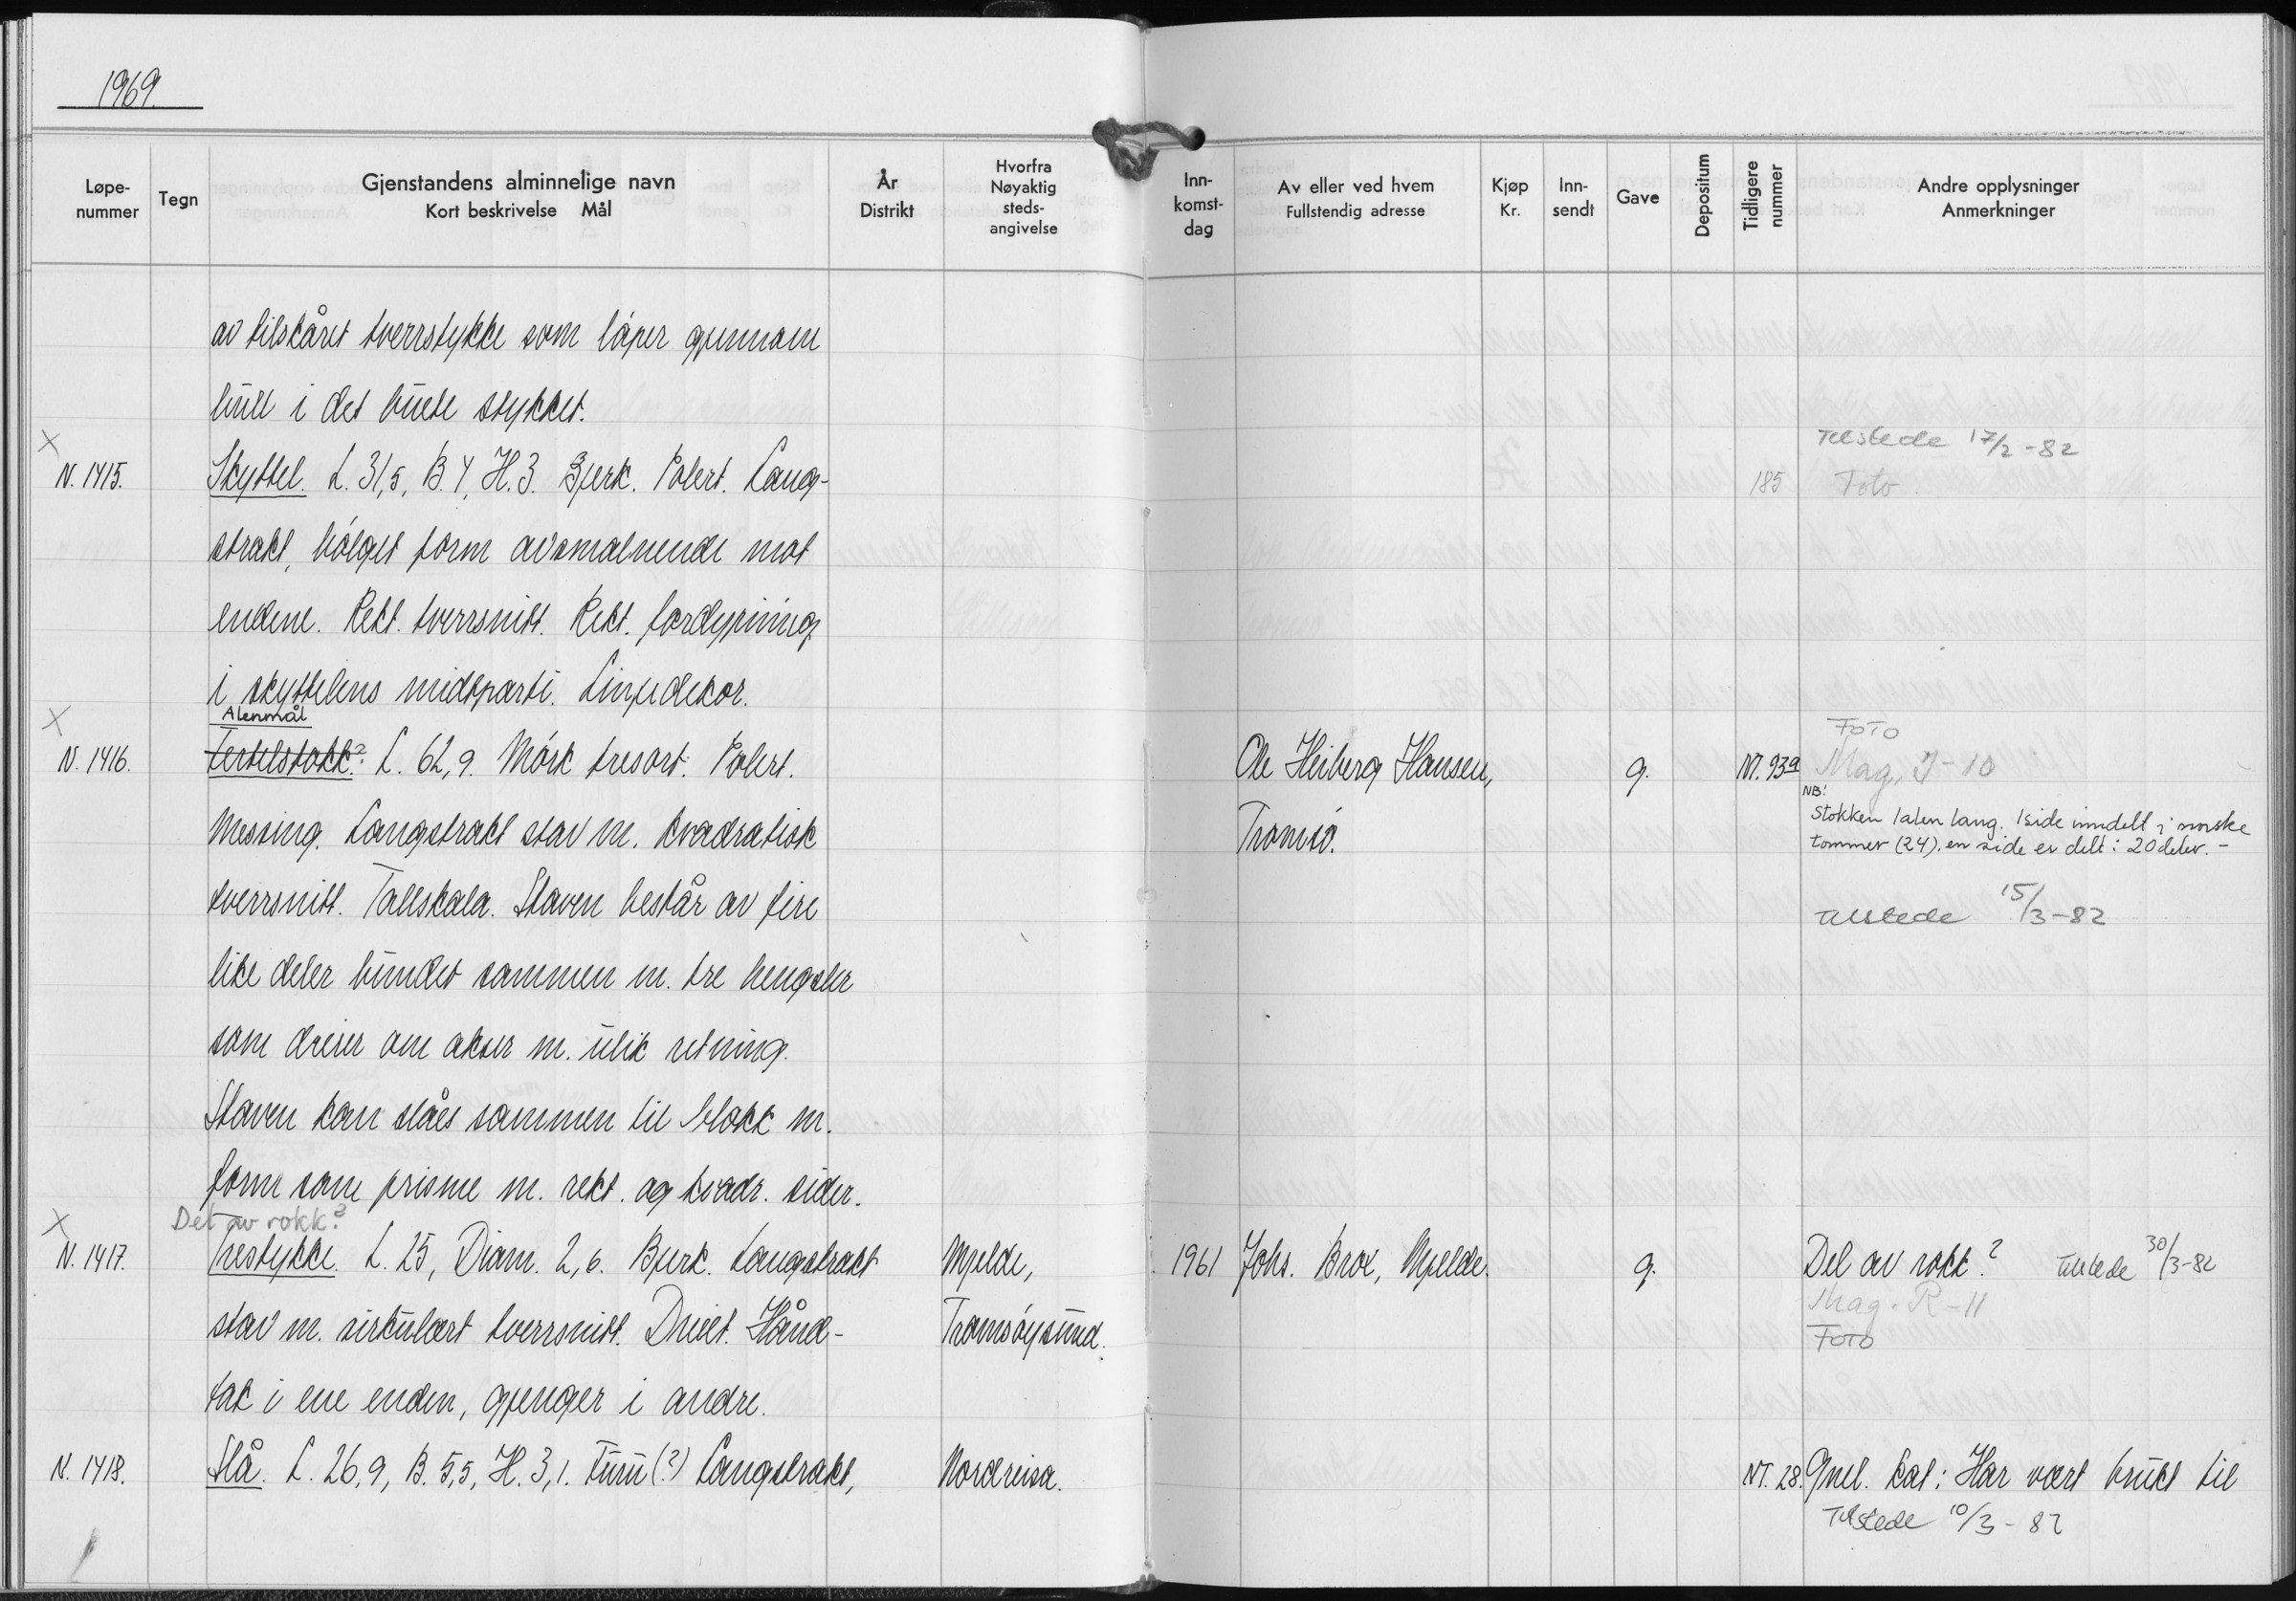 1969.
Løpe-
nummer
Tegn
Gjenstandens alminnelige navn
Kort beskrivelse Mål
År
Distrikt
Hvorfra
Nøyaktig
steds-
angivelse
Inn-
komst-
dag
Av eller ved hvem
Fullstendig adresse
Kjøp
Kr.
Inn-
sendt
Gave
Depositum
Tidligere
nummer
Andre opplysninger
Anmerkninger
av tilskåret tverrstykke som løper gjennom
hull i det buete stykket.
X
Tilstede 17/2-82
N. 1415. Skyttel. L. 31,5, B. 4, H. 3. Bjerk. Polert. Lang- 185 Foto
strakt, bølget form avsmalnende mot
endene. Rekt. tverrsnitt. Rekt. fordypning
i skyttelens midtparti. Linjedekor.
X Alenmål Foto
N. 1416. Tertelstokk? L. 62,9. Mørk tresort. Polert. Ole Heiberg Hansen, g. NT. 93a Mag. J-10
NB!
Stokken 1 alen lang. 1 side inndelt i norske
Messing. Langstrakt stav m. kvadratisk Tromsø. tommer (24), en side er delt i 20 deler. -
tverrsnitt. Tallskala. Staven består av fire Tilstede 15/3-82
like deler bundet sammen m. tre hengsler
som dreier om akser m. ulik retning.
Staven kan slåes sammen til blokk m.
form som prisme m. rekt. og kvadr. sider.
X Del av rokk?
N. 1417. Trestykke. L. 25, Diam. 2,6. Bjerk. Langstrakt Mjelde, 1961 Johs. Brox, Mjelde. g. Del av rokk? Tilstede 30/3-82
Mag. R-11
stav m. sirkulært tverrsnitt. Dreiet. Hånd- Tromsøysund. Foto
tak i ene enden, gjenger i andre.
N. 1418. Slå. L. 26,9, B. 5,5, H. 3,1. Furu (?) Langstrakt, Nordreisa. NT. 28. Gml. kat: Har vært brukt til
Tilstede 10/3-82